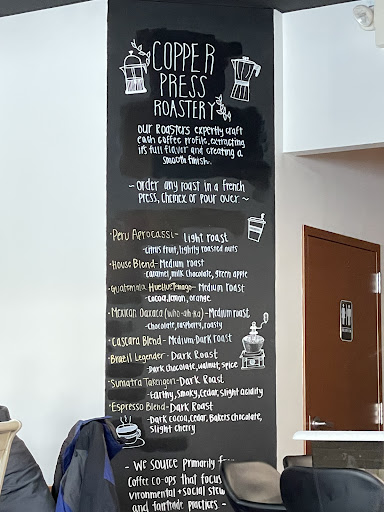 COPPER
PRESS
ROASTERY
OUR ROASTERS expertly craft
each coffee profile, extracting
its full flavor and creating a
smooth finish.
~ ORDER any roast in a French
press, Chemex or Pour over ~
· Peru Aprocassi - Light roast
- citrus fruit, lightly roasted nuts
· House Blend - Medium roast
- caramel, milk chocolate, green apple
· Guatemala Huehuetenango - Medium roast
- cocoa, lemon, orange
· Mexican Oaxaca (who-ah-ka) - Medium roast
- chocolate, raspberry, roasty
· Cascara Blend - Medium-Dark roast
· Brazil Legender - Dark Roast
- Dark chocolate, walnut, spice
· Sumatra Takengon - Dark Roast
- Earthy, smoky, cedar, slight acidity
· Espresso Blend - Dark Roast
- Dark cocoa, cedar, Bakers chocolate,
slight cherry
~ WE SOURCE primarily
Coffee co-ops that focus
vironmental + social
and fairtrade practices -